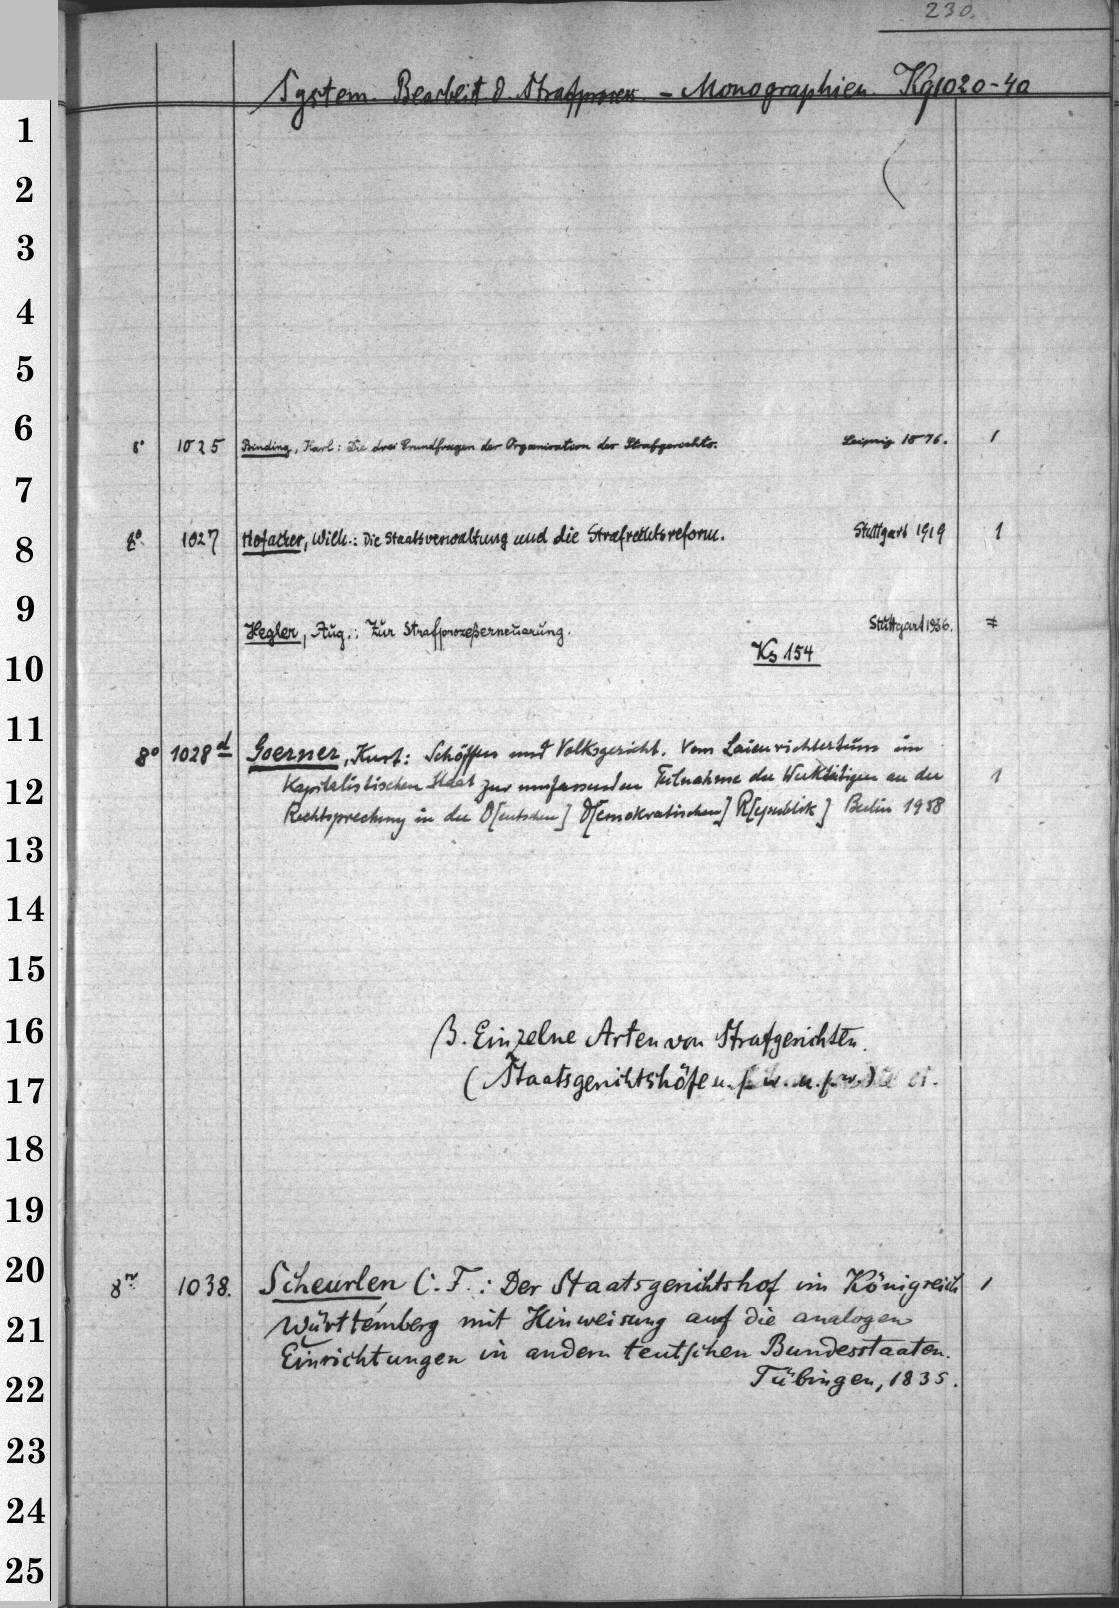 230.
System. Bearbeit. d. Strafprocess. - Monographien. Kg 1020-40
1
2
3
4
5
6
8° 1025 Binding, Karl: Die drei Grundfragen der Organisation des Strafgerichts. Leipzig 1876. 1
7
8
8° 1027 Hofacker, Wilh.: Die Staatsverwaltung und die Strafrechtsreform. Stuttgart 1919 1
9
Hegler, Aug.: Zur Strafprozeßerneuerung. Stuttgart 1936.
10
Ks 154
11
8° 1028d Goerner, Kurt: Schöffen und Volksgericht. Vom Laienrichtertum im
12
Kapitalistischen Staat zur umfassenden Teilnahme der Werktätigen an der 1
Rechtsprechung in der D[eutschen] D[emokratischen] R[epublik] Berlin 1958
13
14
15
16
B. Einzelne Arten von Strafgerichten.
17
(Staatsgerichtshöfe u.
18
19
20
8° 1038. Scheurlen C. F.: Der Staatsgerichtshof im Königreich 1
21
Württemberg mit Hinweisung auf die analogen
Einrichtungen in andern teutschen Bundesstaaten.
22
Tübingen, 1835.
23
24
25